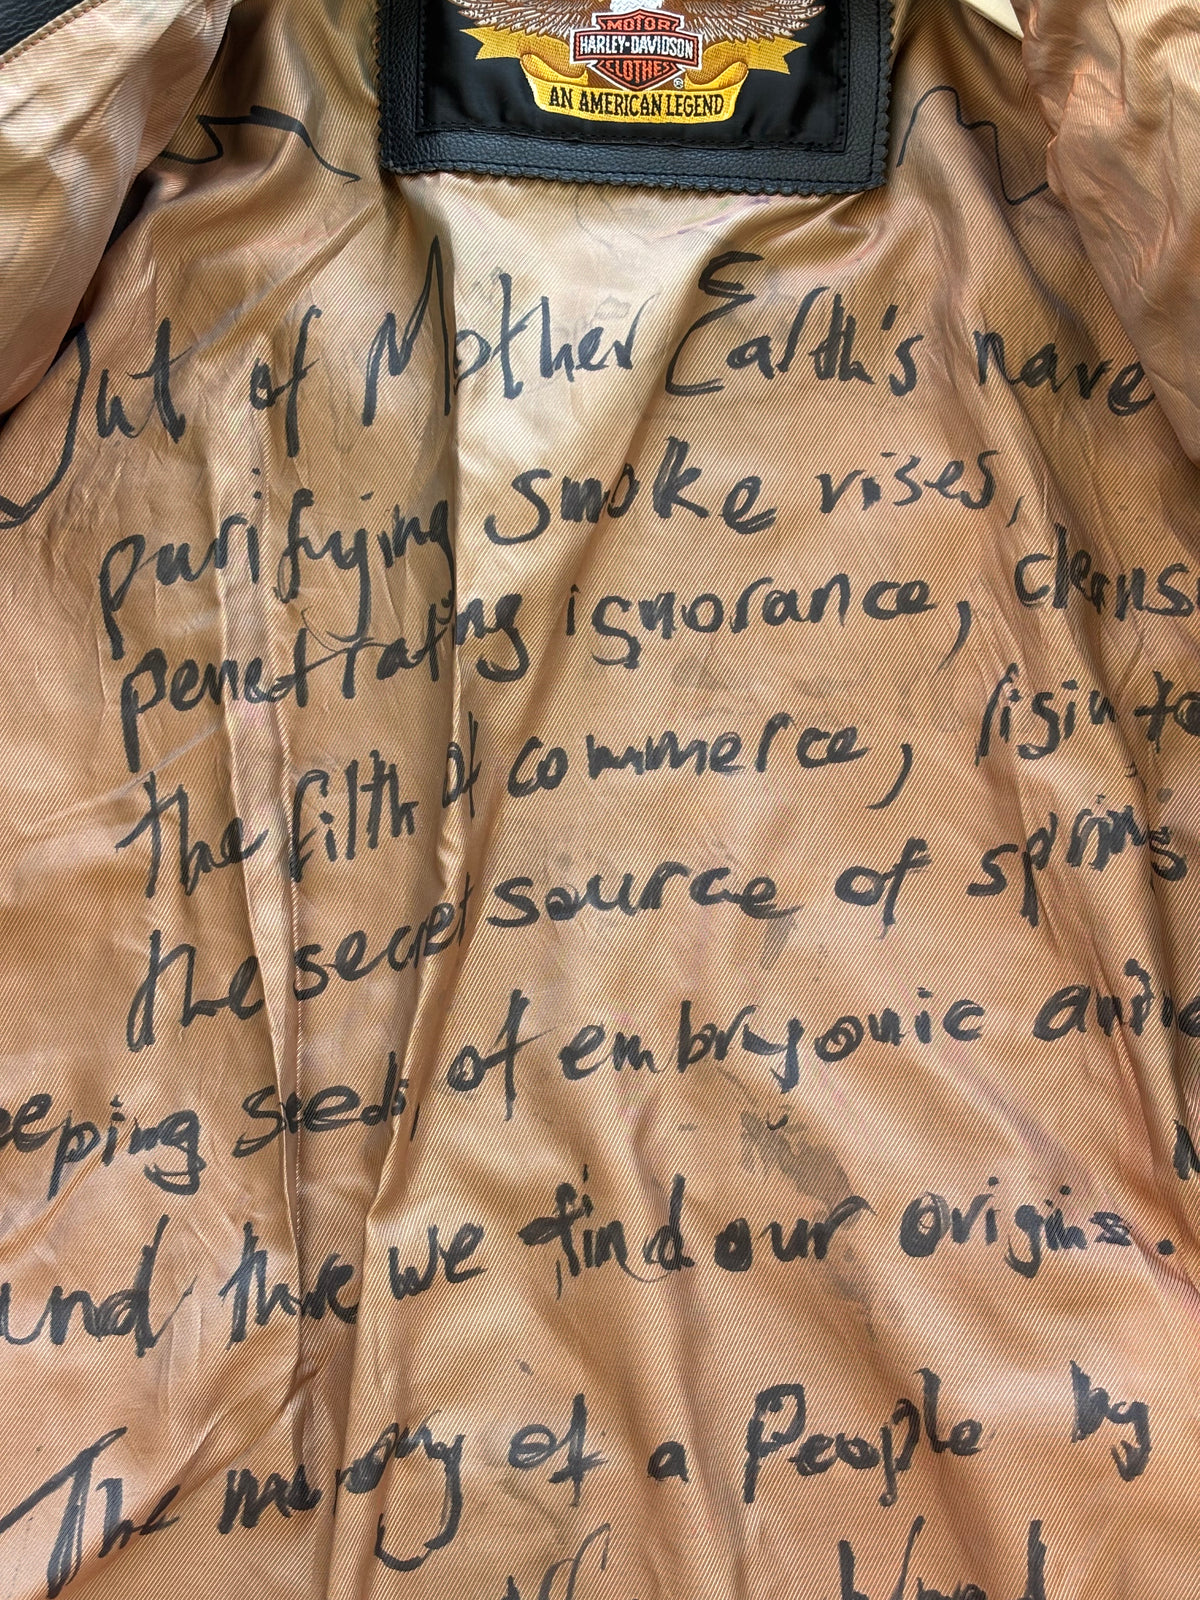 MOTOR
HARLEY-DAVIDSON
CLOTHES
®
AN AMERICAN LEGEND
Out of Mother Earth's nave
purifying smoke rises,
penetrating ignorance, cleans
the filth of commerce, risin to
the secret source of spring
eeping seeds, of embryonic
and there we find our origins.
The memory of a People by